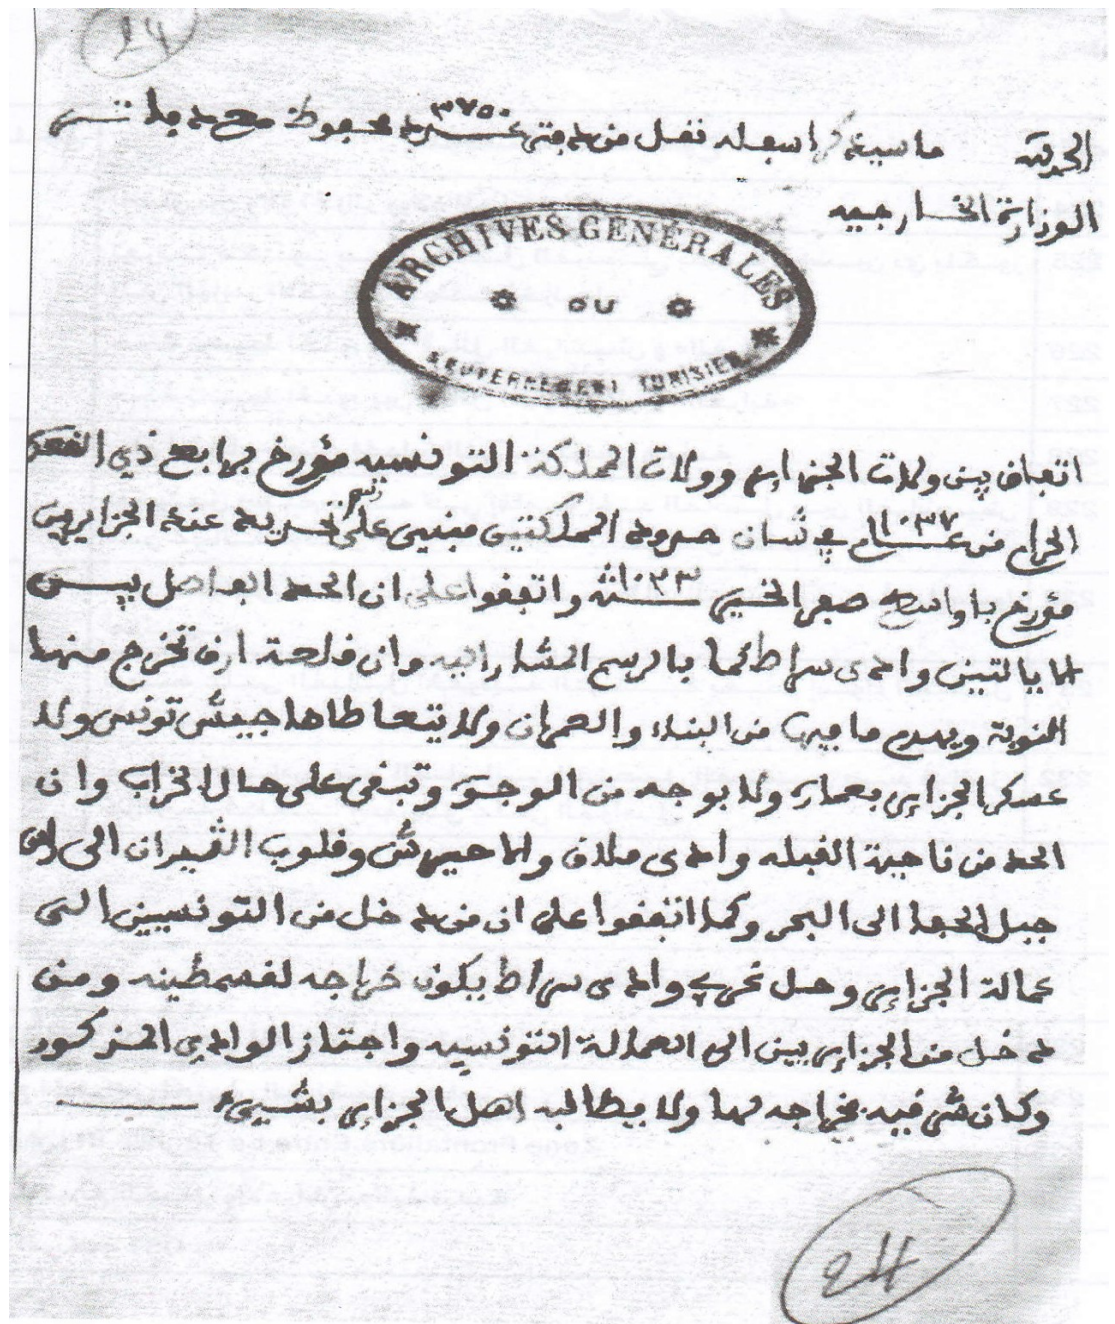 24
الحمد لله ماسيذكر اسفله نقل من دفتر عدد ٣٧٥٠ محفوظ مع دفاتر
الوزارة الخارجيه
ARCHIVES GENERALES
DU
GOUVERNEMENT TUNISIEN
اتفاق بين ولات الجزاير وولات المملكة التونسيه مؤرخ برابع ذي القعدة
الحرام من عام ١٠٣٧ في شان حدود المملكتين مبني على رسم تحديد عند الجزايرين
مؤرخ باواسط صفر الخير سنة ١٠٢٣ واتفقوا على ان الحد الفاصل بين
الايالتين وادى سراط كما بالرسم المشار اليه وان قلعة ارق تخرج منها
النوبة ويهدم ما فيها من البناء والعمران ولا يتعاطاها جيش تونس ولا
عسكر الجزاير بعمارة ولا بوجه من الوجوه وتبقى على حال الخراب وان
الحد من ناحية القبله وادى ملاق والاحيرش وقلوب الثيران الى راس
جبل الحفا الى البحر وكذا اتفقوا على ان من دخل من التونسيين الى
عمالة الجزاير وحل غربي وادى سراط يكون خراجه لقسمطينه ومن
دخل من الجزايريين الى العمالة التونسيه واجتاز الوادي المذكور
وكان شرقيه فخراجه لها ولا يطالبه اهل الجزاير بشيء
24